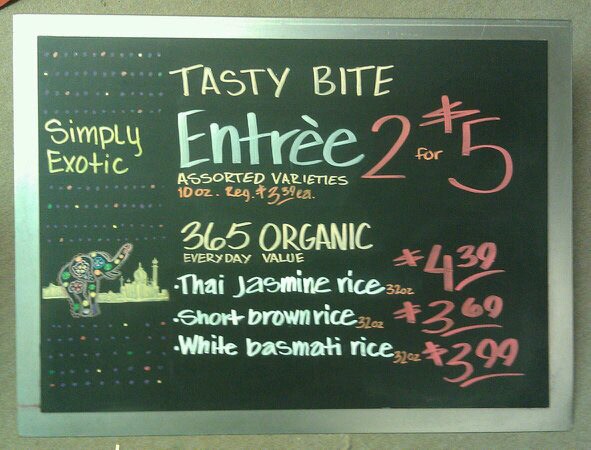 Simply
Exotic
TASTY BITE
Entrèe 2 for $5
ASSORTED VARIETIES
10 oz. Reg. $3.39 ea.
365 ORGANIC
EVERYDAY VALUE
·Thai Jasmine rice 32oz $4.39
·Short brown rice 32oz $3.69
·White basmati rice 32oz $3.99